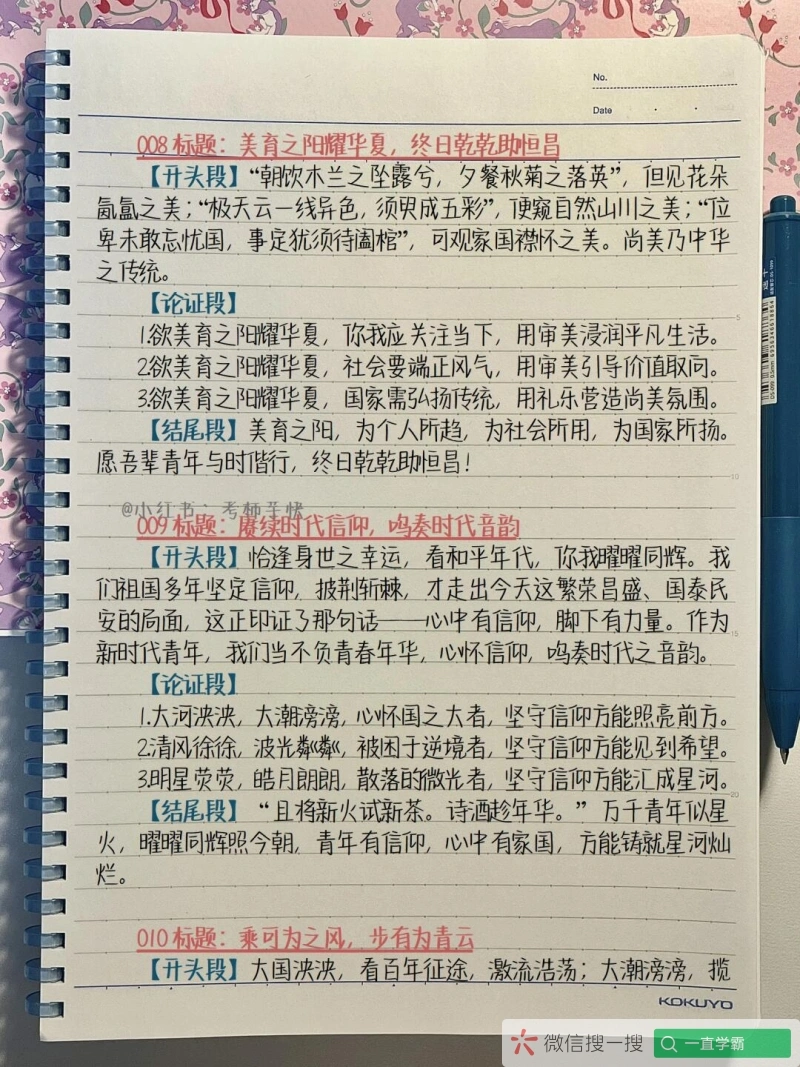 No.
Date
008 标题：美育之阳耀华夏，终日乾乾助恒昌
【开头段】“朝饮木兰之坠露兮，夕餐秋菊之落英”，但见花朵
氤氲之美；“极天云一线异色，须臾成五彩”，便窥自然山川之美；“位
卑未敢忘忧国，事定犹须待阖棺”，可观家国襟怀之美。尚美乃中华
之传统。
【论证段】
1.欲美育之阳耀华夏，你我应关注当下，用审美浸润平凡生活。
2.欲美育之阳耀华夏，社会要端正风气，用审美引导价值取向。
3.欲美育之阳耀华夏，国家需弘扬传统，用礼乐营造尚美氛围。
【结尾段】美育之阳，为个人所趋，为社会所用，为国家所扬。
愿吾辈青年与时偕行，终日乾乾助恒昌！
@小红书
009 标题：赓续时代信仰，鸣奏时代音韵
【开头段】恰逢身世之幸运，看和平年代，你我曜曜同辉。我
们祖国多年坚定信仰，披荆斩棘，才走出今天这繁荣昌盛、国泰民
安的局面，这正印证了那句话——心中有信仰，脚下有力量。作为
新时代青年，我们当不负青春年华，心怀信仰，鸣奏时代之音韵。
【论证段】
1.大河泱泱，大潮滂滂，心怀国之大者，坚守信仰方能照亮前方。
2.清风徐徐，波光粼粼，被困于逆境者，坚守信仰方能见到希望。
3.明星荧荧，皓月朗朗，散落的微光者，坚守信仰方能汇成星河。
【结尾段】“且将新火试新茶。诗酒趁年华。”万千青年似星
火，曜曜同辉照今朝，青年有信仰，心中有家国，方能铸就星河灿
烂。
010 标题：乘可为之风，步有为青云
【开头段】大国泱泱，看百年征途，激流浩荡；大潮滂滂，揽
KOKUYO
微信搜一搜 一直学霸